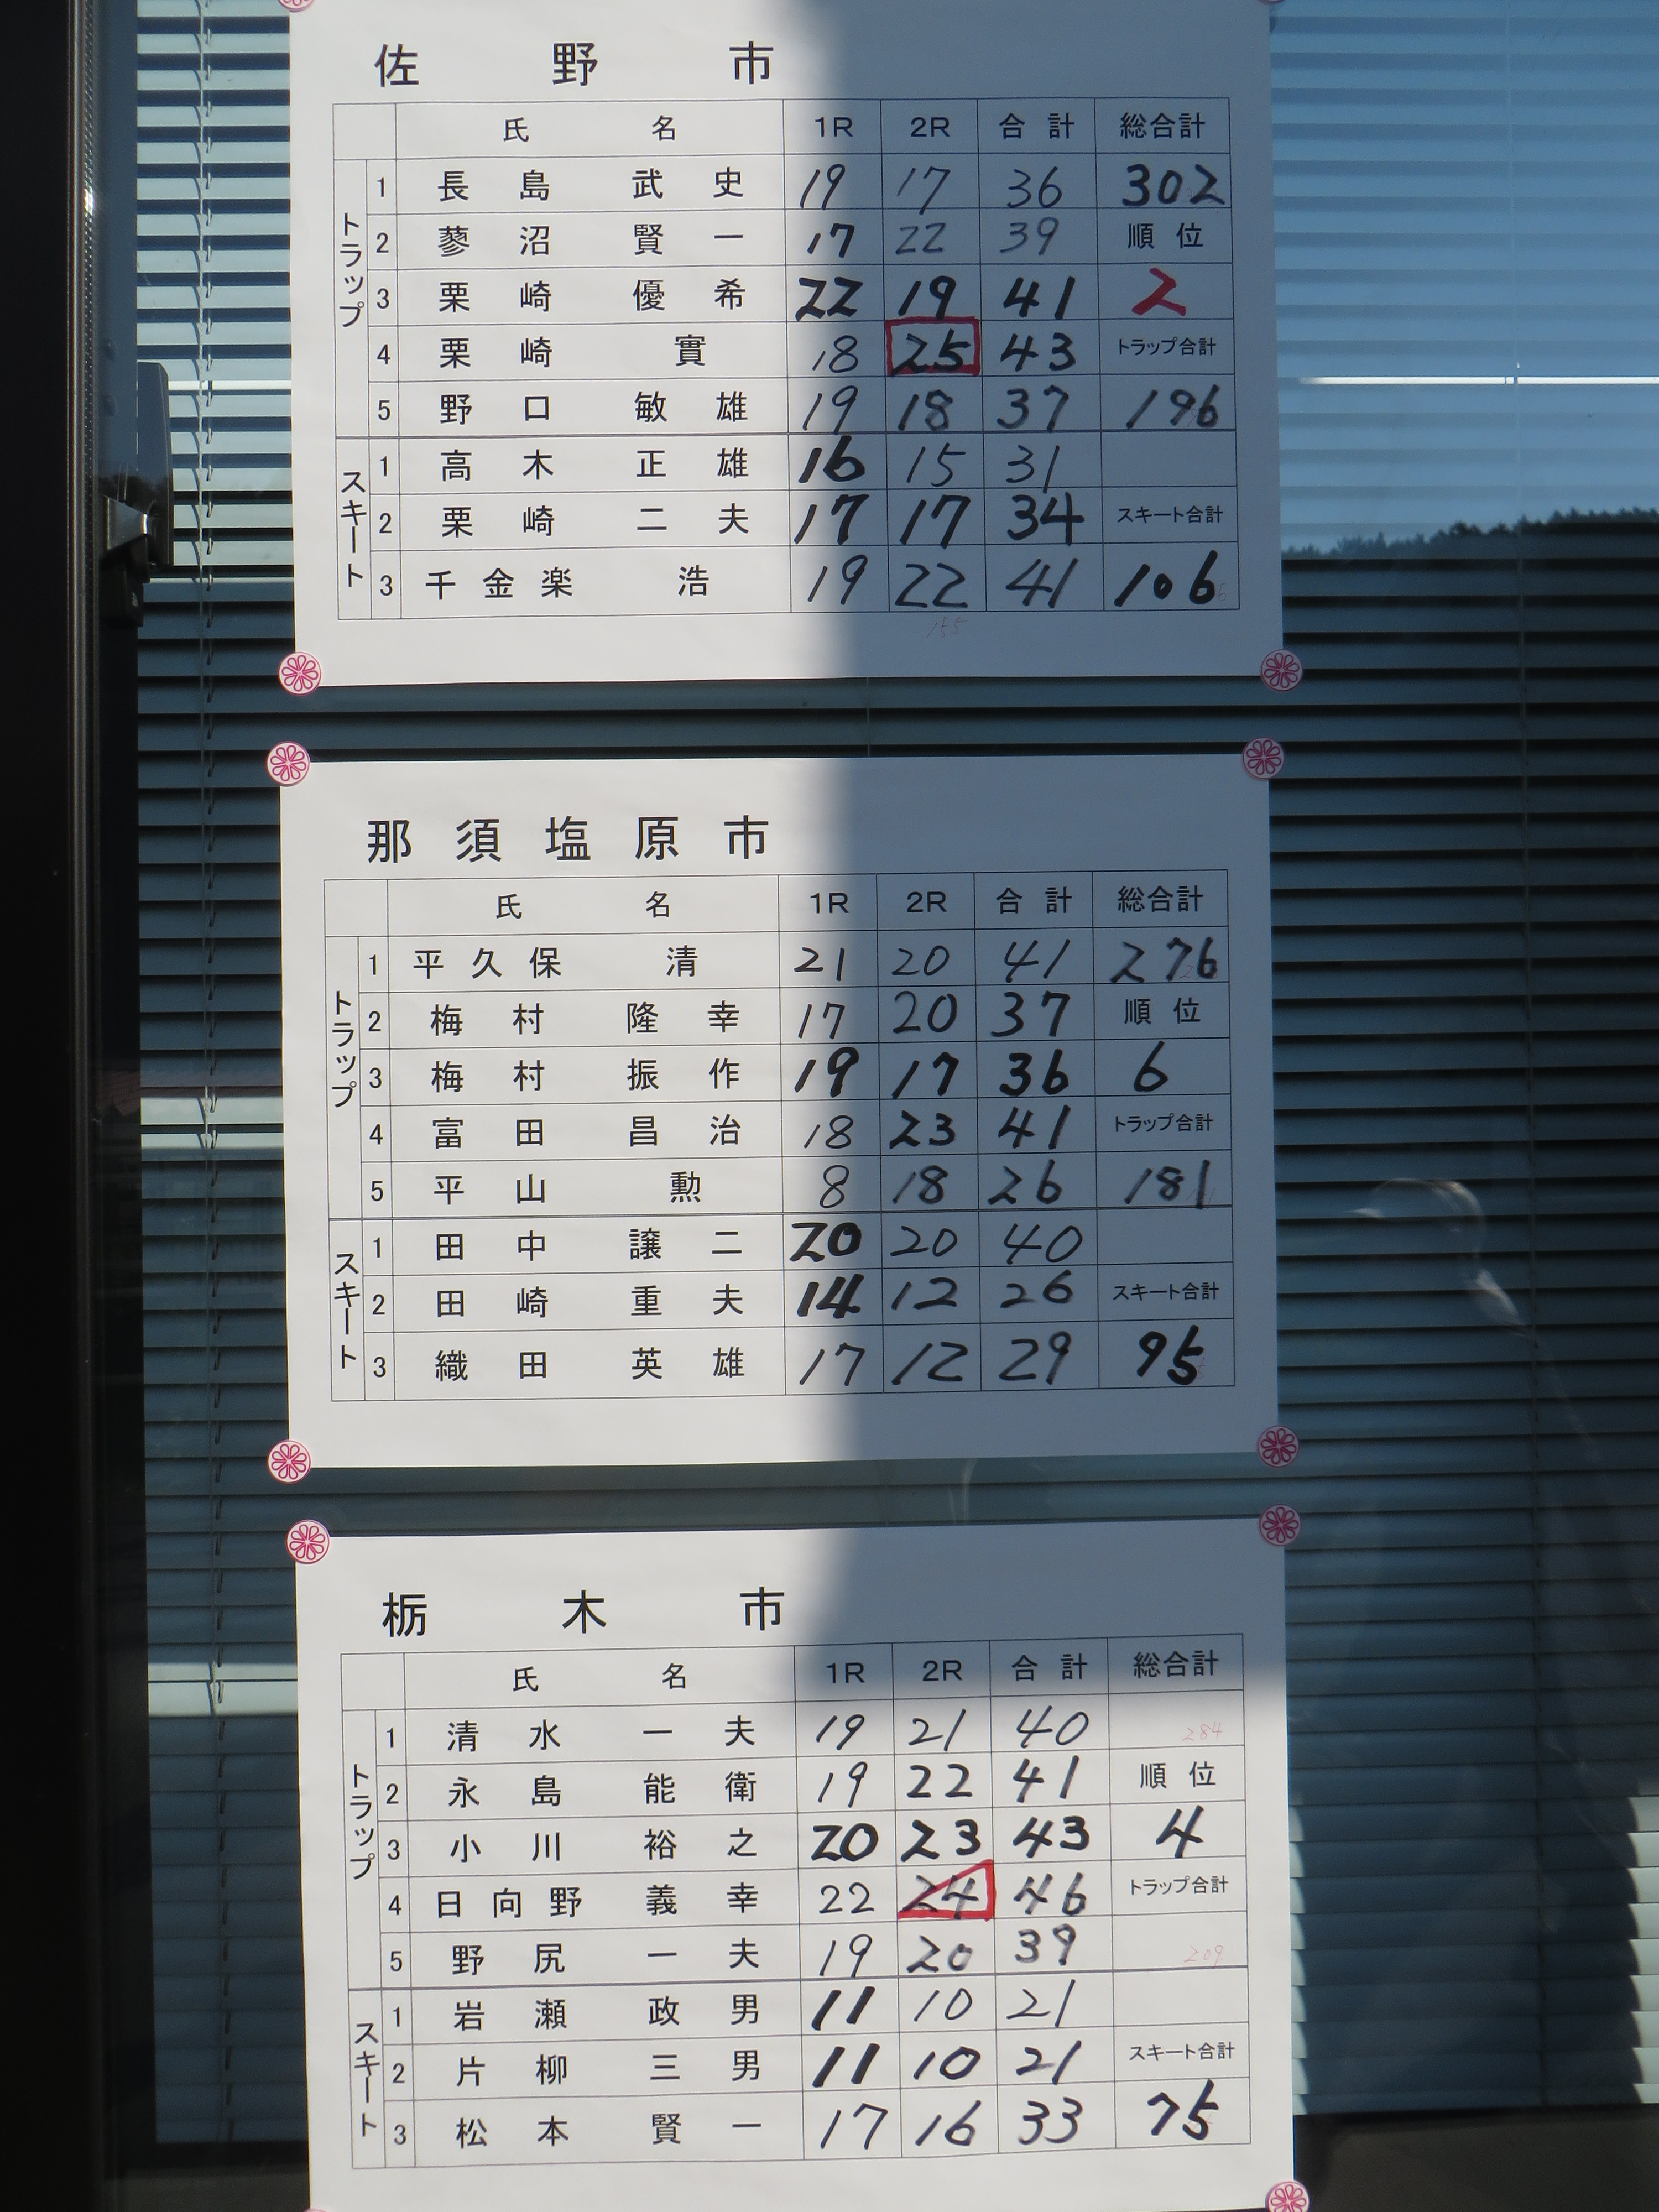 佐野市
氏名 1R 2R 合計 総合計
トラップ
1 長島武史 19 17 36 302
2 蓼沼賢一 17 22 39 順位
3 栗崎優希 22 19 41 2
4 栗崎實 18 25 43 トラップ合計
5 野口敏雄 19 18 37 196
スキート
1 高木正雄 16 15 31
2 栗崎二夫 17 17 34 スキート合計
3 千金楽浩 19 22 41 106
155
那須塩原市
氏名 1R 2R 合計 総合計
トラップ
1 平久保清 21 20 41 276
2 梅村隆幸 17 20 37 順位
3 梅村振作 19 17 36 6
4 富田昌治 18 23 41 トラップ合計
5 平山勲 8 18 26 181
スキート
1 田中譲二 20 20 40
2 田崎重夫 14 12 26 スキート合計
3 織田英雄 17 12 29 95
栃木市
氏名 1R 2R 合計 総合計
トラップ
1 清水一夫 19 21 40 284
2 永島能衛 19 22 41 順位
3 小川裕之 20 23 43 4
4 日向野義幸 22 24 46 トラップ合計
5 野尻一夫 19 20 39 209
スキート
1 岩瀬政男 11 10 21
2 片柳三男 11 10 21 スキート合計
3 松本賢一 17 16 33 75